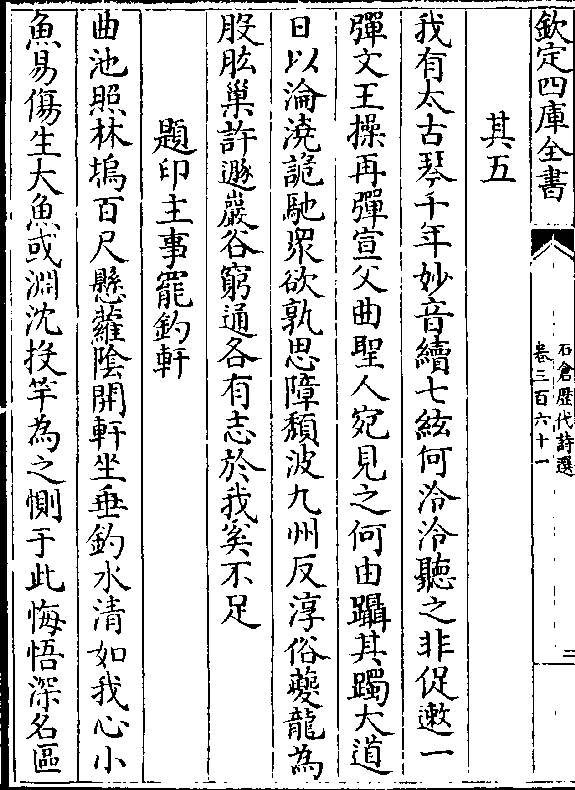 欽定四庫全書
石倉歷代詩選
卷三百六十一
三
其五
我有太古琴千年妙音續七絃何泠泠聽之非促遬一
彈文王操再彈宣父曲聖人宛見之何由躡其躅大道
日以淪澆詭馳衆欲孰思障頹波九州反淳俗夔龍為
股肱巢許遯巖谷窮通各有志於我奚不足
題印主事罷釣軒
曲池照林塢百尺懸蘿陰開軒坐垂釣水清如我心小
魚易傷生大魚或淵沈投竿為之惻于此悔悟深名區